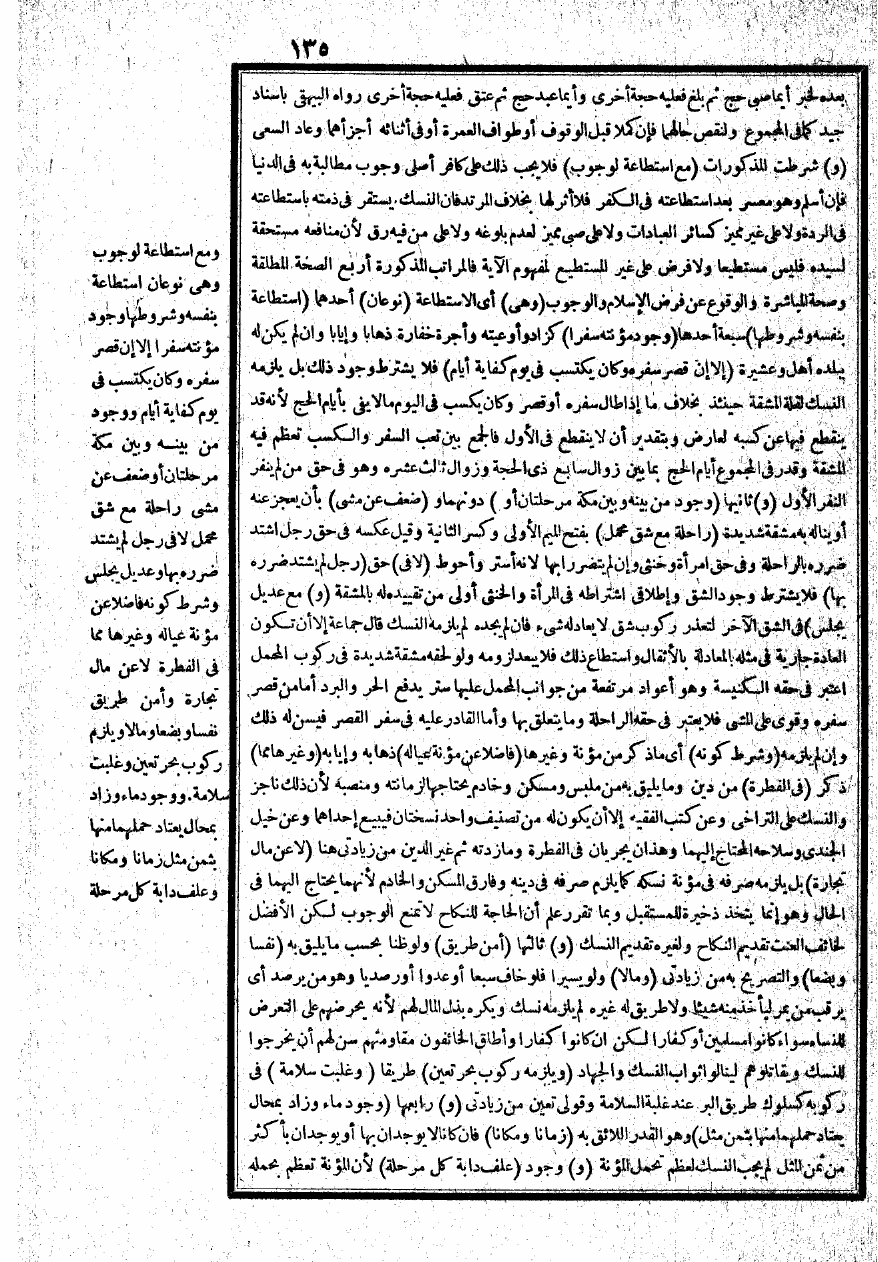 ١٣٥
بعده لخبر أيما صبي حج ثم بلغ فعليه حجة أخرى وأيما عبد حج ثم عتق فعليه حجة أخرى رواه البيهقى باسناد
جيد كما فى المجموع ولنقص حالهما فإن كملا قبل الوقوف أو طواف العمرة أو فى أثنائه أجزأهما وعاد السعى
(و) شرطت للذكورات (مع استطاعة لوجوب) فلا يجب ذلك على كافر أصلى وجوب مطالبة به فى الدنيا
فإن أسلم وهو معسر بعد استطاعته فى الكفر فلا أثر لها بخلاف المرتد فان النسك يستقر فى ذمته باستطاعته
فى الردة ولا على غير مميز كسائر العبادات ولا على صبى مميز لعدم بلوغه ولا على من فيه رق لأن منافعه مستحقة
لسيده فليس مستطيعا ولا فرض على غير المستطيع لمفهوم الآية فالمراتب المذكورة أربع الصحة المطلقة
وصحة المباشرة والوقوع عن فرض الإسلام والوجوب (وهى) أى الاستطاعة (نوعان) أحدهما (استطاعة
بنفسه وشروطها) سبعة أحدها (وجود مؤنته سفرا) كزاد وأوعيته وأجرة خفارة ذهابا وإيابا وان لم يكن له
ببلده أهل وعشيرة (إلا إن قصر سفره وكان يكتسب فى يوم كفاية أيام) فلا يشترط وجود ذلك بل يلزمه
النسك لقلة المشقة حينئذ بخلاف ما إذا طال سفره أو قصر وكان يكسب فى اليوم مالا يفى بأيام الحج لأنه قد
ينقطع فيها عن كسبه لعارض وبتقدير أن لا ينقطع فى الأول فالجمع بين تعب السفر والكسب تعظم فيه
المشقة وقدر فى المجموع أيام الحج بما بين زوال سابع ذى الحجة وزوال ثالث عشره وهو فى حق من لم ينفر
النفر الأول (و) ثانيها (وجود من بينه وبين مكة مرحلتان أو) دونهما و (ضعف عن مشى) بأن يعجز عنه
أو يناله به مشقة شديدة (راحلة مع شق محمل) بفتح الميم الأولى وكسر الثانية وقيل عكسه فى حق رجل اشتد
ضرره بالراحلة وفى حق امرأة وخنثى وإن لم يتضررا بها لانه أستر وأحوط (لا فى) حق (رجل لم يشتد ضرره
بها) فلا يشترط وجود الشق وإطلاق اشتراطه فى المرأة والخنثى أولى من تقييده له بالمشقة (و) مع عديل
يجلس) فى الشق الآخر لتعذر ركوب شق لا يعادله شىء فان لم يجده لم يلزمه النسك قال جماعة إلا أن تكون
العادة جارية فى مثله بالمعادلة بالأثقال واستطاع ذلك فلا يبعد لزومه ولو لحقه مشقة شديدة فى ركوب المحمل
اعتبر فى حقه الكنيسة وهو أعواد مرتفعة من جوانب المحمل عليها ستر يدفع الحر والبرد أما من قصر
سفره وقوى على المشى فلا يعتبر فى حقه الراحلة وما يتعلق بها وأما القادر عليه فى سفر القصر فيسن له ذلك
وإن لم يلزمه (وشرط كونه) أى ما ذكر من مؤنة وغيرها (فاضلا عن مؤنة عياله) ذهابه وإيابه (وغيرها مما)
ذكر (فى الفطرة) من دين وما يليق به من ملبس ومسكن وخادم يحتاجها لزمانته ومنصبه لأن ذلك ناجز
والنسك على التراخى وعن كتب الفقيه إلا أن يكون له من تصنيف واحد نسختان فيبيع إحداهما وعن خيل
الجندى وسلاحه المحتاج إليهما وهذان يجريان فى الفطرة وما زدته ثم غير الدين من زيادتى هنا (لا عن مال
تجارة) بل يلزمه صرفه فى مؤنة نسكه كما يلزم صرفه فى دينه وفارق المسكن والخادم لأنهما يحتاج اليهما فى
الحال وهو إنما يتخذ ذخيرة للمستقبل وبما تقرر علم أن الحاجة للنكاح لا تمنع الوجوب لكن الأفضل
لخائف العنت تقديم النكاح ولغيره تقديم النسك (و) ثالثها (أمن طريق) ولو ظنا بحسب ما يليق به (نفسا
وبضعا) والتصريح به من زيادتى (ومالا) ولو يسيرا فلو خاف سبعا أو عدوا أو رصديا وهو من يرصد أى
يرقب من يمر ليأخذ منه شيئا ولا طريق له غيره لم يلزمه نسك ويكره بذل المال لهم لأنه يحرضهم على التعرض
للناس سواء كانوا مسلمين أو كفارا لكن ان كانوا كفارا وأطاق الخائفون مقاومتهم سن لهم أن يخرجوا
للنسك ويقاتلوهم لينالوا ثواب النسك والجهاد (ويلزمه ركوب بحر تعين) طريقا (وغلبت سلامة) فى
ركوبه كسلوك طريق البر عند غلبة السلامة وقولى تعين من زيادتى (و) رابعها (وجود ماء وزاد بمحال
يعتاد حملهما منها بثمن مثل) وهو القدر اللائق به (زمانا ومكانا) فان كانا لا يوجدان بها أو يوجدان بأكثر
من ثمن المثل لم يجب النسك لعظم تحمل المؤنة (و) وجود (علف دابة كل مرحلة) لأن المؤنة تعظم بحمله
ومع استطاعة لوجوب
وهى نوعان استطاعة
بنفسه وشروطها وجود
مؤنته سفرا إلا إن قصر
سفره وكان يكتسب فى
يوم كفاية أيام ووجود
من بينه وبين مكة
مرحلتان أو ضعف عن
مشى راحلة مع شق
محمل لا فى رجل لم يشتد
ضرره بها وعديل يجلس
وشرط كونه فاضلا عن
مؤنة عياله وغيرها مما
فى الفطرة لا عن مال
تجارة وأمن طريق
نفسا وبضعا ومالا ويلزم
ركوب بحر تعين وغلبت
سلامة. ووجود ماء وزاد
بمحال يعتاد حملهما منها
بثمن مثل زمانا ومكانا
وعلف دابة كل مرحلة